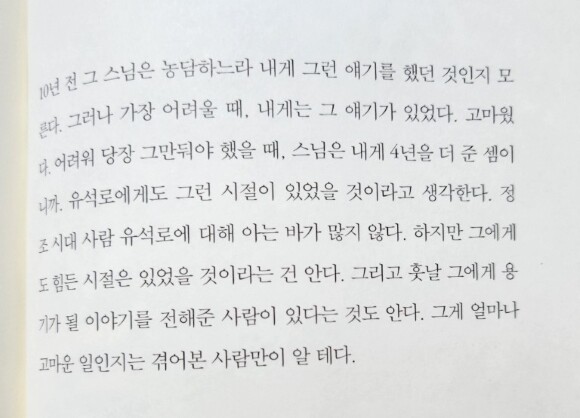 10년 전 그 스님은 농담하느라 내게 그런 얘기를 했던 것인지 모
른다. 그러나 가장 어려울 때, 내게는 그 얘기가 있었다. 고마웠
다. 어려워 당장 그만둬야 했을 때, 스님은 내게 4년을 더 준 셈이
니까. 유석로에게도 그런 시절이 있었을 것이라고 생각한다. 정
조 시대 사람 유석로에 대해 아는 바가 많지 않다. 하지만 그에게
도 힘든 시절은 있었을 것이라는 건 안다. 그리고 훗날 그에게 용
기가 될 이야기를 전해준 사람이 있다는 것도 안다. 그게 얼마나
고마운 일인지는 겪어본 사람만이 알 테다.